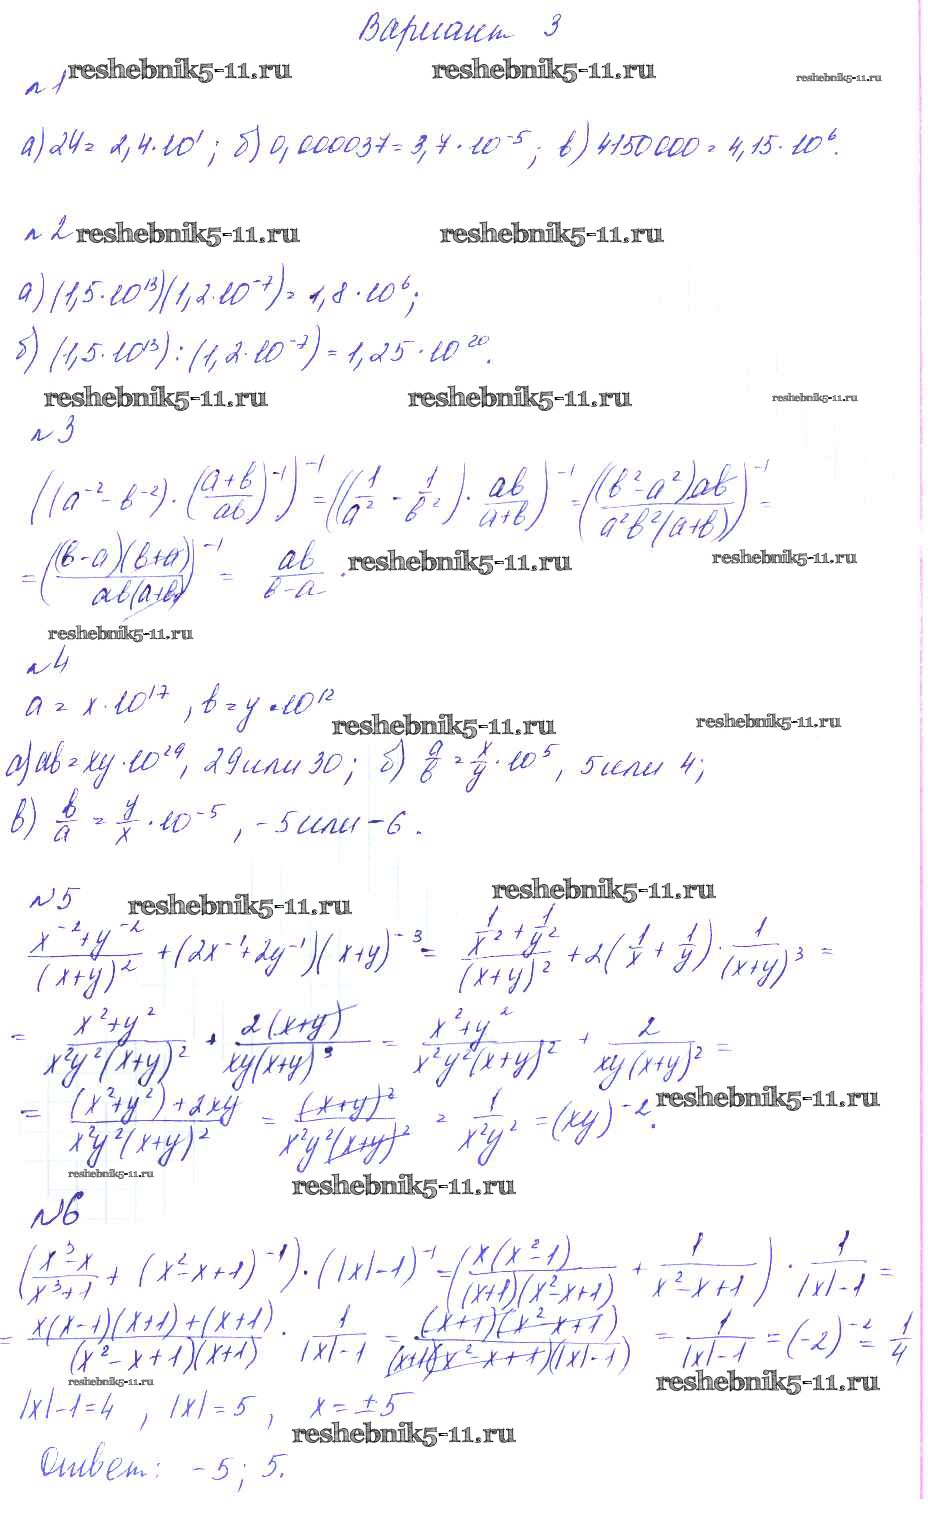 Вариант 3
reshebnik5-11.ru reshebnik5-11.ru reshebnik5-11.ru
№1
а) 24 = 2,4·10¹; б) 0,000037 = 3,7·10⁻⁵; в) 4150000 = 4,15·10⁶.
№2 reshebnik5-11.ru reshebnik5-11.ru
а) (1,5·10¹³)(1,2·10⁻⁷) = 1,8·10⁶;
б) (1,5·10¹³):(1,2·10⁻⁷) = 1,25·10²⁰.
reshebnik5-11.ru reshebnik5-11.ru reshebnik5-11.ru
№3
((a⁻² - b⁻²)·((a+b)/(ab))⁻¹)⁻¹ = ((1/a² - 1/b²)·ab/(a+b))⁻¹ = (((b²-a²)ab)/(a²b²(a+b)))⁻¹ =
= (((b-a)(b+a))/(ab(a+b)))⁻¹ = ab/(b-a). reshebnik5-11.ru reshebnik5-11.ru
reshebnik5-11.ru
№4
a = x·10¹⁷, b = y·10¹²
reshebnik5-11.ru reshebnik5-11.ru
а) ab = xy·10²⁹, 29 или 30; б) a/b = x/y·10⁵, 5 или 4;
в) b/a = y/x·10⁻⁵, -5 или -6.
№5 reshebnik5-11.ru reshebnik5-11.ru
(x⁻²+y⁻²)/(x+y)² + (2x⁻¹+2y⁻¹)(x+y)⁻³ = (1/x² + 1/y²)/(x+y)² + 2(1/x + 1/y)·1/(x+y)³ =
= (x²+y²)/(x²y²(x+y)²) + 2(x+y)/(xy(x+y)³) = (x²+y²)/(x²y²(x+y)²) + 2/(xy(x+y)²) =
= ((x²+y²)+2xy)/(x²y²(x+y)²) = (x+y)²/(x²y²(x+y)²) = 1/(x²y²) = (xy)⁻². reshebnik5-11.ru
reshebnik5-11.ru reshebnik5-11.ru
№6
((x³-x)/(x³+1) + (x²-x+1)⁻¹)·(|x|-1)⁻¹ = (x(x²-1)/((x+1)(x²-x+1)) + 1/(x²-x+1))·1/(|x|-1) =
= (x(x-1)(x+1)+(x+1))/((x²-x+1)(x+1))·1/(|x|-1) = ((x+1)(x²-x+1))/((x+1)(x²-x+1)(|x|-1)) = 1/(|x|-1) = (-2)⁻² = 1/4
reshebnik5-11.ru reshebnik5-11.ru
|x|-1=4, |x|=5, x=±5
reshebnik5-11.ru
Ответ: -5; 5.